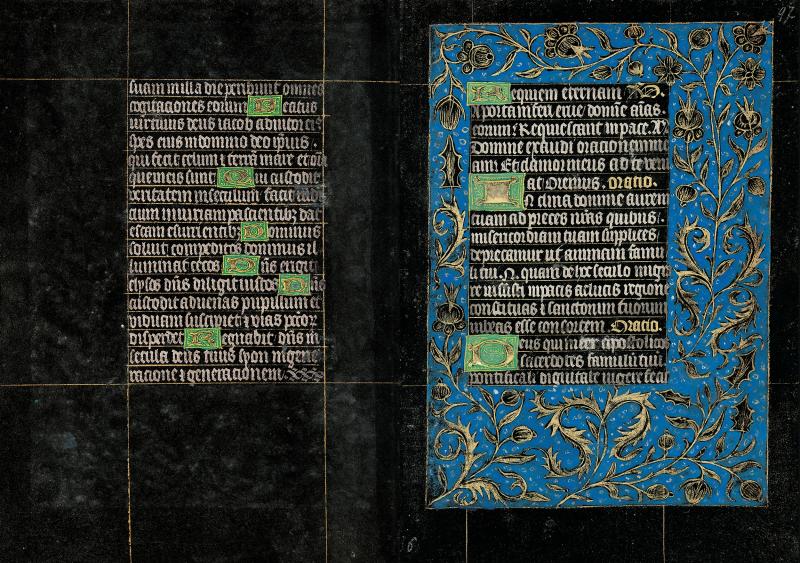 suam in illa die peribunt omnes
cogitaciones eorum Beatus
cuius deus iacob adiutor eius
spes eius in domino deo ipsius.
qui fecit celum ⁊ terra mare et oīa
que in eis sunt Qui custodit
veritatem in seculum facit iudi
cium iniuriam pacientibȝ dat
escam esurientibȝ Dominus
soluit compeditos dominus il
luminat cecos Dn̄s erigit
elysos dn̄s diligit iustos Dn̄s
custodit aduenas pupillum et
viduam suscipiet ⁊ vias pctōr
disperdet Regnabit dn̄s in
secula deus tuus syon in gene
racione ⁊ generacionem.
97
Requiem eternam
A porta inferi erue domine aīas
eorum Requiescant in pace.
Domine exaudi oracionem me
am Et clamor meus ad te veni
at Oremus. Oratio.
Inclina domine aurem
tuam ad preces nr̄as quibus
misericordiam tuam supplices
deprecamur ut animam famu
li tui N. quam de hoc seculo migra
re iussisti in pacis ac lucis regione
constituas ⁊ sanctorum tuorum
iubeas esse consortem Oratio.
Deus qui inter apostolicos
sacerdotes famulū tuū
pontificali dignitate uigere feci
6